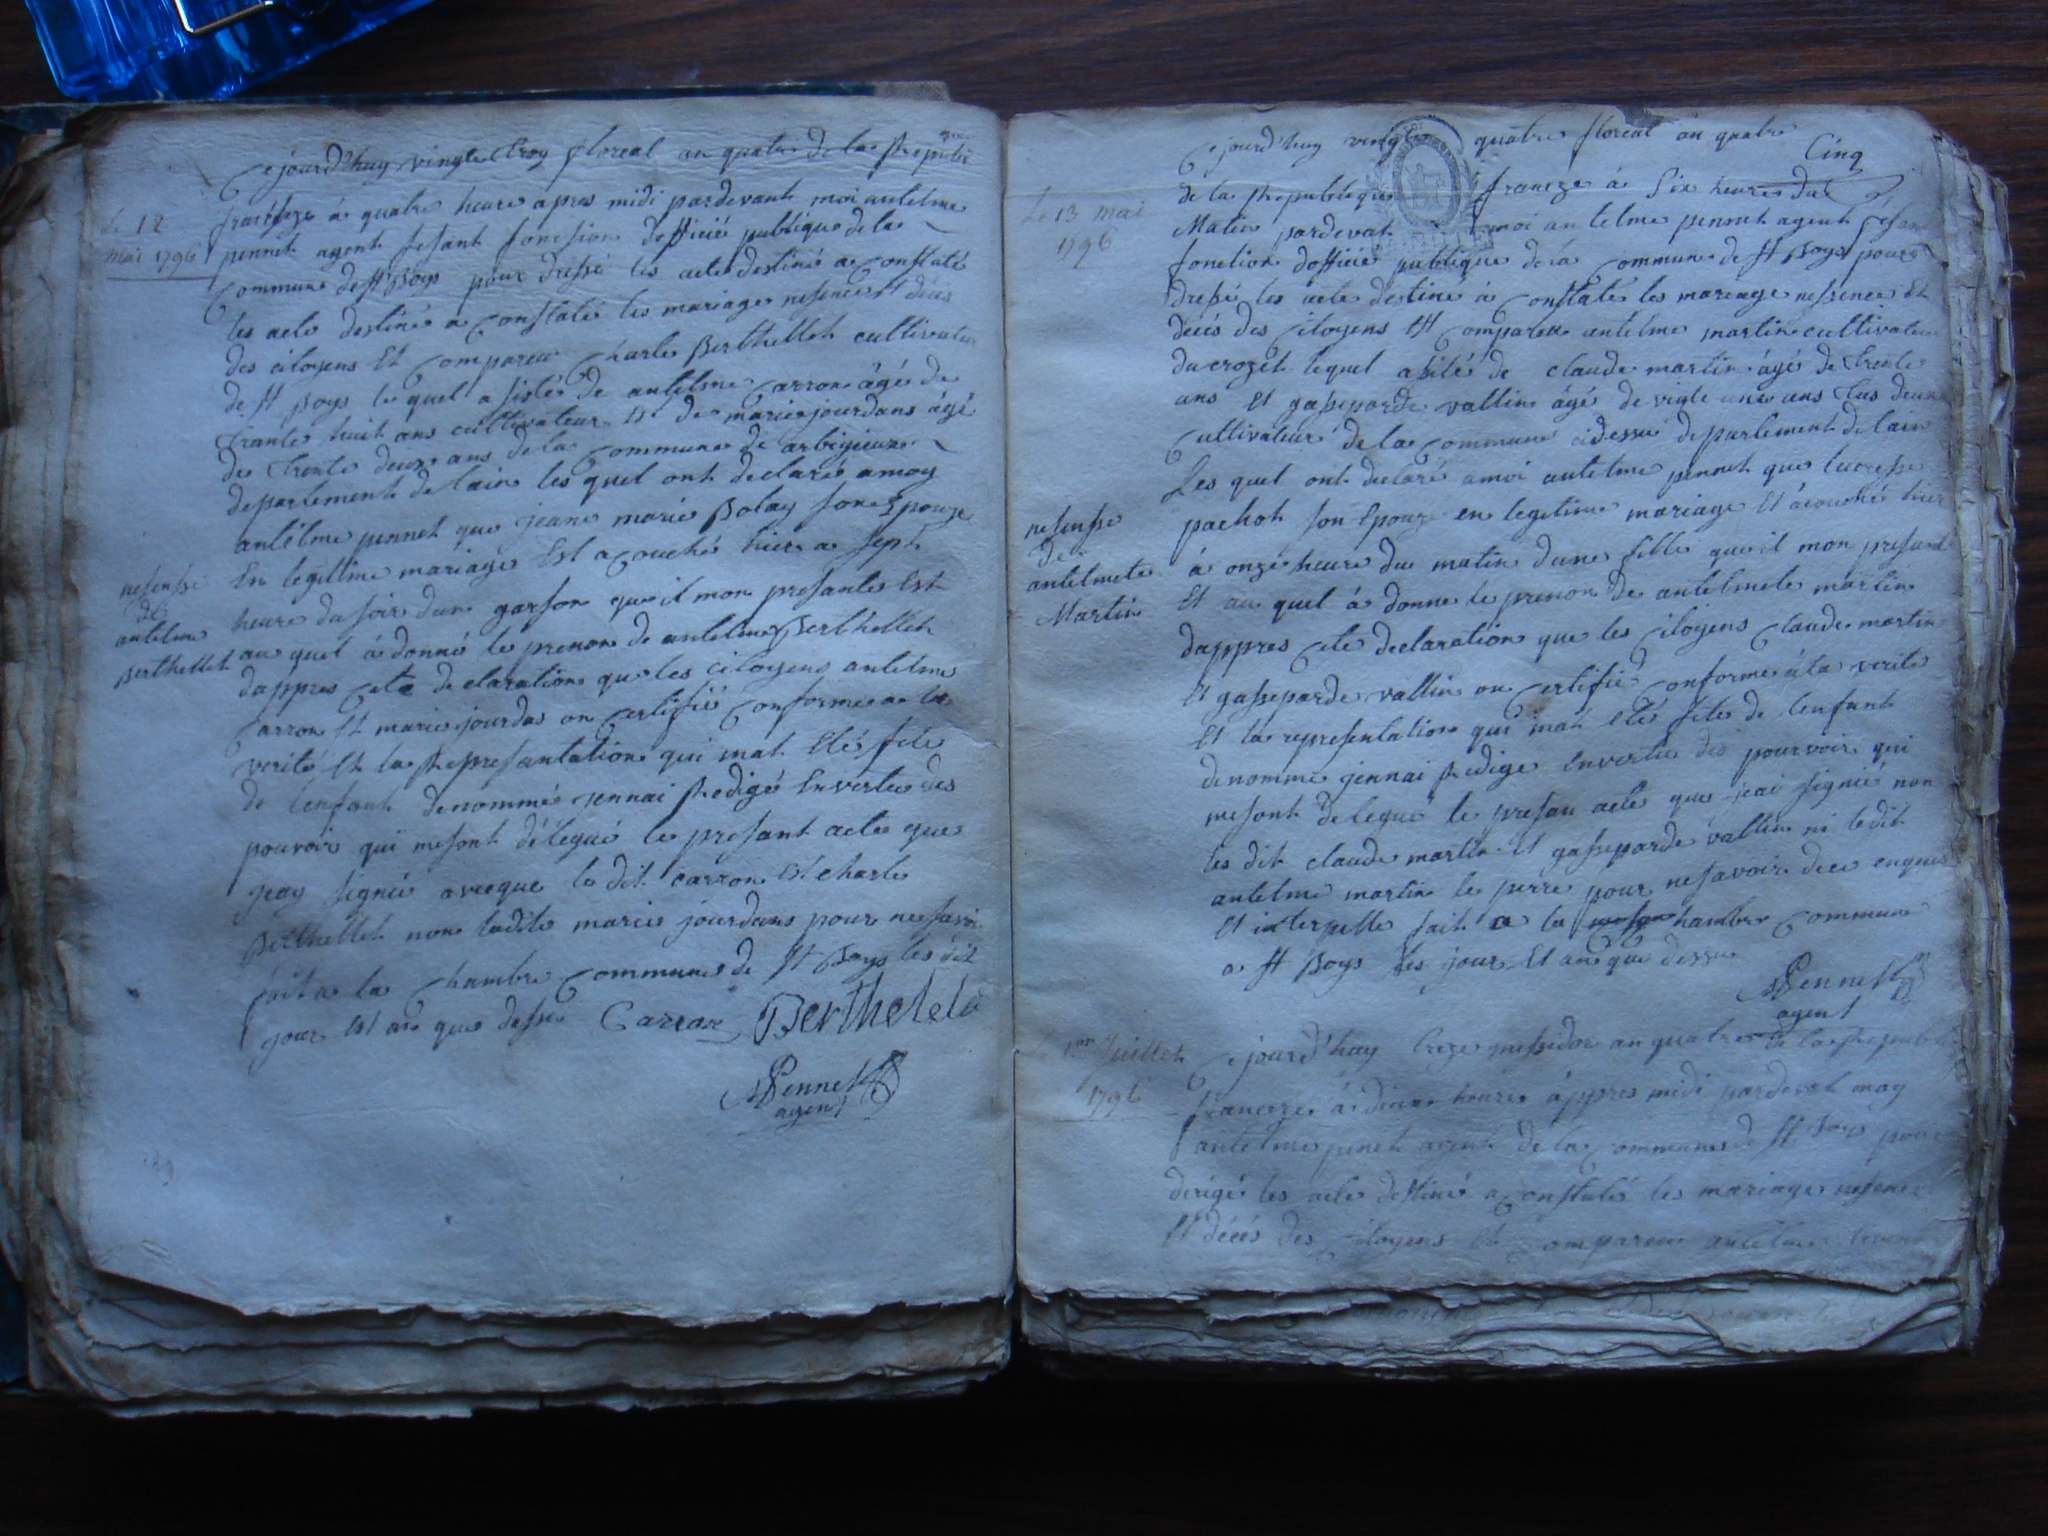 Cejourd'huy vingte troy floreal an quatre de la Repube
francesze à quatre heure apres midi pardevant moi antelme
pennet agent fesant fonction dofficié publique de la
Commune de St Boys pour dressé les acte destiné a Constaté
les acte destiné a Constaté les mariage nesence et déces
des citoyens Et Compareu Charle Berthellet cultivateur
de St Boys le quel asisté de antelme Carron âgé de
trante huit ans cultivateur Et de marie jourdans âgé
de trente deux ans de la Commune de arbigieux
departement de lain les quel ont declaré amoy
antelme pennet que jeane marie Bolay son Epouze
En legittime mariage Est acouché hier a sept
heure du soir dun garson que il mon presante Est
au quel á donné le prenon de antelme Berthellet
dappres cete declaration que les citoyens antelme
Carron Et marie jourdas on Certifié Conforme a la
verité Et la Representation qui mat Eté fete
de lenfant denommé jennai Redigé En vertu des
pouvoir qui mesont délégué le presant acte que
jeay signié avecque le dit Carron Et Charle
Berthellet non ladite marie jourdans pour ne savoir
fait a la Chambre Commune de St Boys les dit
jour Est an que dessu Carron Berthelet
APennet
agent
le 12
mai 1796
nesensse
de
antelme
Berthellet
Cejourd'huy vingte quatre floreal an quatre
Cinq
de la Republique franceze à Six heure du
Matin pardevat moi antelme pennet agent fesant
fonction dofficié publique de la Commune de St Boys pour
dressé les acte destiné á Constaté les mariage nessence Et
décés des Citoyens Et Compareu antelme martin cultivateur
du crozet lequel asité de claude martin âgé de trente
ans Et gasseparde vallin âgé de vigte une ans tus deux
Cultivateur de la Commune cidessu departement de lain
Les quel ont declaré amoi antelme pennet que lucresse
pachot son Epouze en legetime mariage Et acouché hier
à onze heure du matin dune fille que il mon presante
Et au quel á donne le prenon de antelmete martin
dappres cete declaration que les citoyens Claude martin
Et gasseparde vallin on Certifié Conforme á la verité
Et la representation qui mat Eté fete de lenfant
denommé jennai Redige En vertu des pourvoir qui
mesont delegué le presan acte que jeai signié non
les dit claude martin Et gasseparde vallin ni ledit
antelme martin le perre pour nesavoir de ce enquis
Et interpelle fait a la hambre Commune
a St Boys les jour Et an que dessu
APennet
agent
le 13 mai
1796
nesensse
de
antelmete
Martin
le 1er Juillet
1796
Cejourd'huy treze messidor an quatre de la Republi
francere á deux heure áppres midi pardevat moy
antelme penet agent de la Commune de St Boys pour
derigé les acte destiné a Constaté les mariage nesence
Et décés des Citoyens Et Compareu antelme